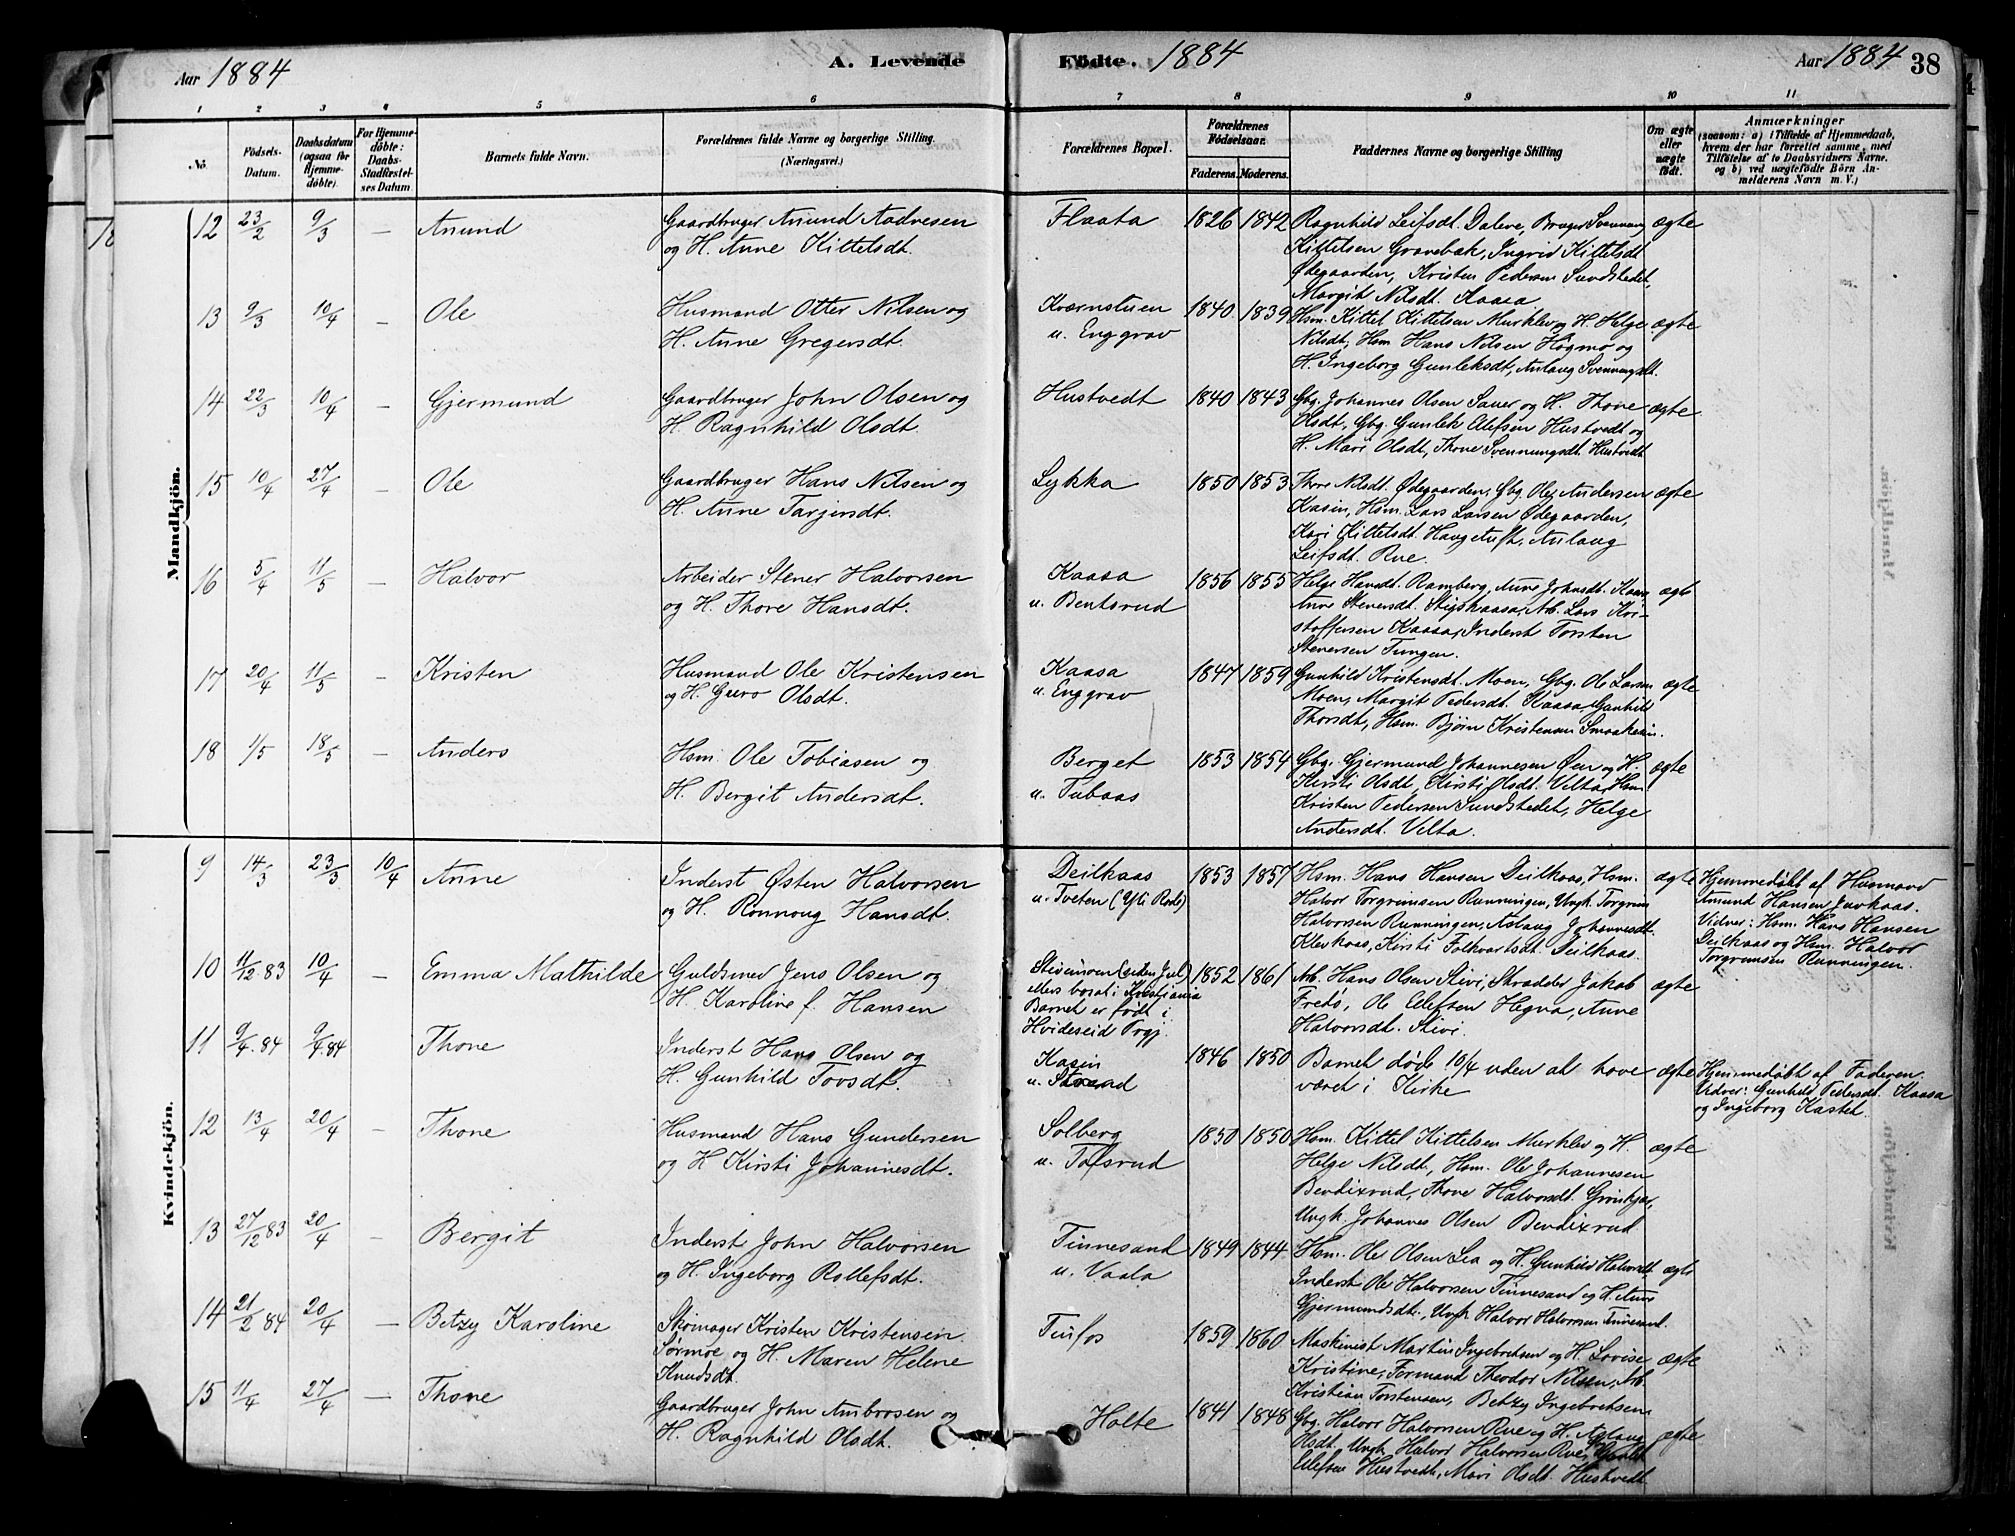 Aar 1884 A. Levende Födte. 1884 Aar 1884 38
1 2 3 4 5 6 7 8 9 10 11
No. Födsels-Datum. Daabsdatum (ogsaa for Hjemmedöbte). For Hjemmedöbte: Daabs-Stadfæstelses Datum Barnets fulde Navn. Forældrenes fulde Navne og borgerlige Stilling (Næringsvei.) Forældrenes Bopæl. Forældrenes Födselsaar. Faderens. Moderens. Faddernes Navne og borgerlige Stilling Om ægte eller uægte födt. Anmærkninger (saasom: a) i Tilfælde af Hjemmedaab, hvem der har forrettet samme, med Tilföielse af to Daabsvidners Navne, og b) ved uægtefödte Börn Anmelderens Navn m. V.)
Mandkjön.
12 23/2 9/3 — Anund Gaardbruger Anund Aadnesen Flaata 1826 1842 Ragnhild Leifsdt. Dalene, Bruger Svennung ægte
og H. Anne Kittelsdt. Kittelsen Gravebæk, Ingrid Kittelsdt
Ødegaarden, Kristen Pedersen Sundstedet,
Margit Nilsdt. Kaasa
13 9/3 10/4 — Ole Husmand Otter Nilsen og Kværnstuen 1840. 1839 Hsm. Kittel Kittelsen Murklev og H. Helge ægte
H. Anne Gregersdt. u. Enggrav Nilsdt, Hsm Hans Nilsen Høgmo og
H. Ingeborg Gunleksdt, Aslaug Svennungsdt.
14 22/3 10/4 — Gjermund Gaardbruger John Olsen og Hustvedt 1840 1843 Gbg. Johannes Olsen Sauer og H. Thone ægte
H. Ragnhild Olsdt. Olsdt, Gbg. Gunlek Olefsen Hustvedt og
H. Mari Olsdt, Thone Svennungsdt. Hustvedt
15 10/4 27/4 — Ole Gaardbruger Hans Nilsen og Lykka 1850 1853 Thore Nilsdt. Ødegaarden, Gbg. Ole Andersen ægte
H. Anne Tarjersdt. Kasin, Hsm. Lars Larsen Ødegaarden,
Kari Kittelsdt. Haugetuft, Aslaug
Leifsdt. Rue.
16 5/4 11/5 — Halvor Arbeider Stener Halvorsen Kaasa 1856 1855 Helge Hansdt. Ramberg, Anne Johnsdt. Kaasa, ægte
og H. Thore Hansdt. u. Bentsrud Anne Stenersdt. Stigskaasa, Arb. Lars Kri-
stoffersen Kaasa, Inderst Torsten
Stenersen Tungen.
17 20/4 11/5 — Kristen Husmand Ole Kristensen Kaasa 1847 1859 Gunhild Kristensdt. Moen, Gbg. Ole Larsen ægte
og H. Guro Olsdt. u. Enggrav Moen, Margit Pedersdt. Kaasa, Gunhild
Thorsdt, Hsm. Bjørn Kristensen
18 1/5 18/5 — Anders Hsm. Ole Tobiasen og Berget 1853 1854 Gbg. Gjermund Johannesen Øen og H. ægte
H. Bergit Andersdt. u. Tubaas Kirsti Olsdt, Kirsti Olsdt. Velta, Hsm.
Kristen Pedersen Sundstedet, Helge
Andersdt. Velta.
Kvindekjön.
9 14/3 23/3 10/4 Anne Inderst Østen Halvorsen Deilkaas 1853 1857 Hsm. Hans Hansen Deilkaas, Hsm. ægte Hjemmedøbt af Husmand
og H. Ronnoug Hansdt. u. Tveten Halvor Torgrimsen Runningen, Ungk. Torgrim Amund Hansen
Halvorsen Runningen, Aslaug Johannesdt. Vidner: Hsm. Hans Hansen
Klevkaas, Kirsti Folkvartsdt. Deilkaas. Deilkaas og Hsm. Halvor
Torgrimsen Runningen.
10 11/12 83 10/4 — Emma Mathilde Guldsmed Jens Olsen og 1852 1861 Arb. Hans Olsen Stivi, Skrædder Jakob ægte
H. Karoline f. Hansen ellers bosat i Kristiania Fredø, Ole Ellefsen Hegna, Anne
Barnet er født i Halvorsdt. Stivi.
Hvideseid Prgj.
11 9/4. 84 9/4 84 Thone Inderst Hans Olsen og Kasin 1846 1850 Barnet døde 10/4 uden at have ægte Hjemmedøbt af Faderen.
H. Gunhild Tovsdt. u. været i Kirke Vidner: Gunhild Pedersdt. Kaasa
og Ingeborg Kastet.
12 13/4 20/4 — Thone Husmand Hans Gundersen Solberg 1850 1850 Hsm. Kittel Kittelsen Murklev og H. ægte
og H Kirsti Johannesdt. u. Tofsrud Helge Nilsdt., Hsm. Ole Johannesen
Bendixrud, Thone Halvorsdt.
Ungk. Johannes Olsen Bendixrud
13 27/12 83 20/4 — Bergit Inderst John Halvorsen Tinnesand 1849 1844 Hsm. Ole Olsen Lia og H. Gunhild Halvorsdt, ægte
og H. Ingeborg Rollefsdt. u. Vaala Inderst Ole Halvorsen Tinnesand og H. Anne
Gjermundsdt., Ungk Halvor Halvorsen Tinnesand.
14 21/2 84 20/4 — Betzy Karoline Skomager Kristen Kristensen Tinfos 1859 1860 Maskinist Martin Ingebretsen og H. Lovise ægte
Sørmoe og H. Maren Helene Kristine, Formand Theodor Nilsen, Arb.
Knudsdt. Kristian Torstensen, Betzy Ingebretsen
15 11/4 27/4 — Thone Gaardbruger John Ambrosen og Holte 1841 1848 Gbg. Halvor Halvorsen Rue og H. Aslaug ægte
H. Ragnhild Olsdt. Olsdt. Ungk Halvor Halvorsen Rue, Gunlek
Ellefsen Hustvedt, Mari Olsdt. Hustvedt